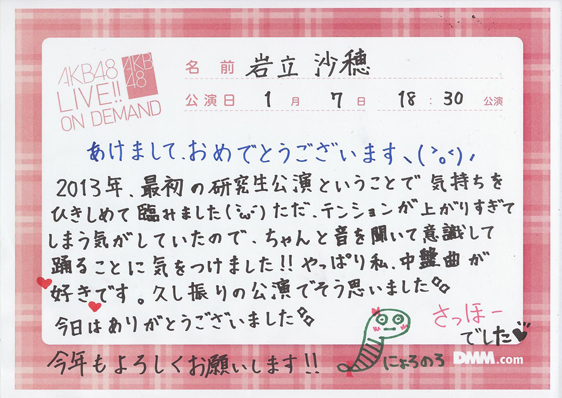 AKB48
LIVE!!
ON DEMAND
AKB
48
名前 岩立 沙穂
公演日 1月 7日 18:30 公演
あけまして、おめでとうございます、
2013年、最初の研究生公演ということで 気持ちを
ひきしめて 臨みました(˘ω˘) ただ、テンションが上がりすぎて
しまう気がしていたので、ちゃんと音を聞いて意識して
踊ることに気をつけました!! やっぱり私、中盤曲が
好きです。久し振りの公演でそう思いました
今日はありがとうございました
今年もよろしくお願いします!!
にょろのろ
さっほー
でした
DMM.com